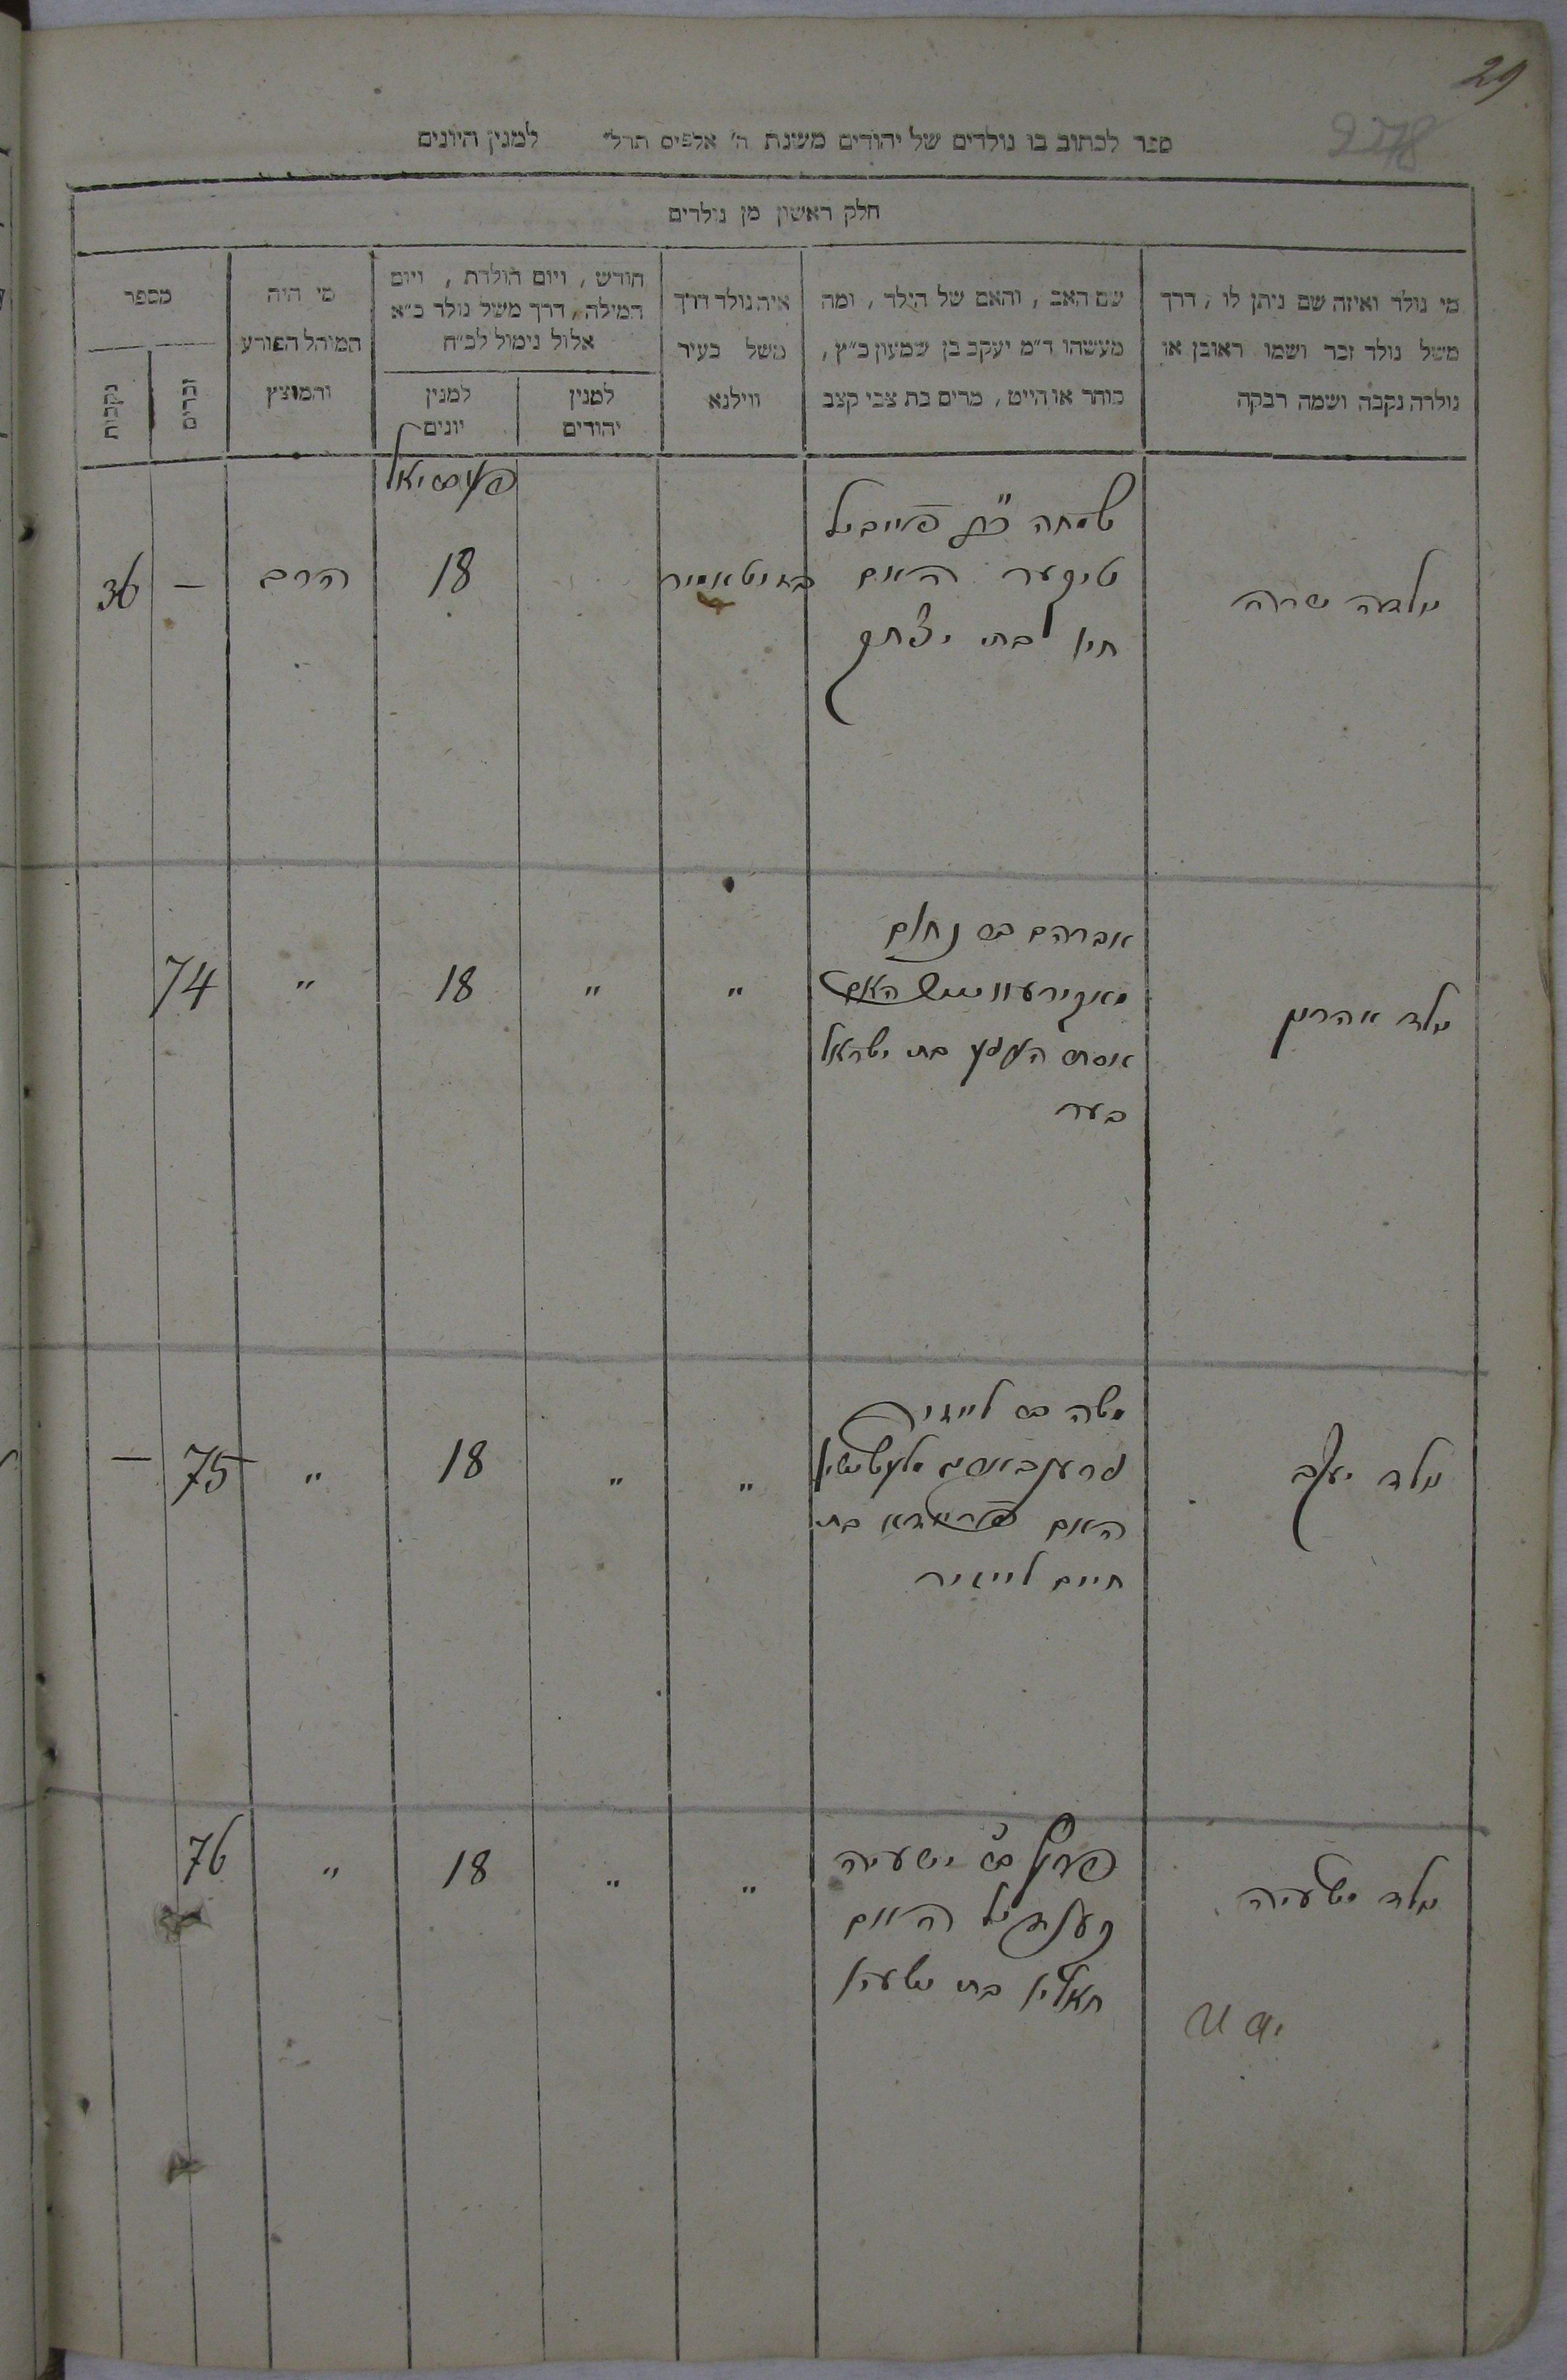 29
2278
ספר לכתוב בו נולדים של יהודים משנת ה' אלפים תרל" למנין היונים
חלק ראשון מן נולדים
מי נולד ואיזה שם ניתן לו, דרך
משל נולד זכר ושמו ראובן או
נולדה נקבה ושמה רבקה
שם האב, והאם של הילד, ומה
מעשהו ד"מ יעקב בן שמעון כ"ץ,
סוחר או הייט, מרים בת צבי קצב
איה נולד דרך
משל בעיר
ווילנא
חודש, ויום הולדת, ויום
המילה, דרך משל נולד כ"א
אלול נימול לכ"ח
למנין
יהודים
למנין
יונים
מי היה
המוהל הפורע
והמוצץ
מספר
זכרים
נקבות
ילדה שרה
שמחה פייביל
האם
חי' בת יצחק
בזיטאמיר
18
הרב
—
36
ילד אהרן
אברהם בן נחום
האם
אסתר בת ישראל
בער
"
"
18
"
74
ילד יעקב
משה בן לייזיר
האם פריידא בת
חיים לייזיר
"
"
18
"
75
—
ילד ישעיה
בן ישעיה
האם
בת
"
"
18
"
76